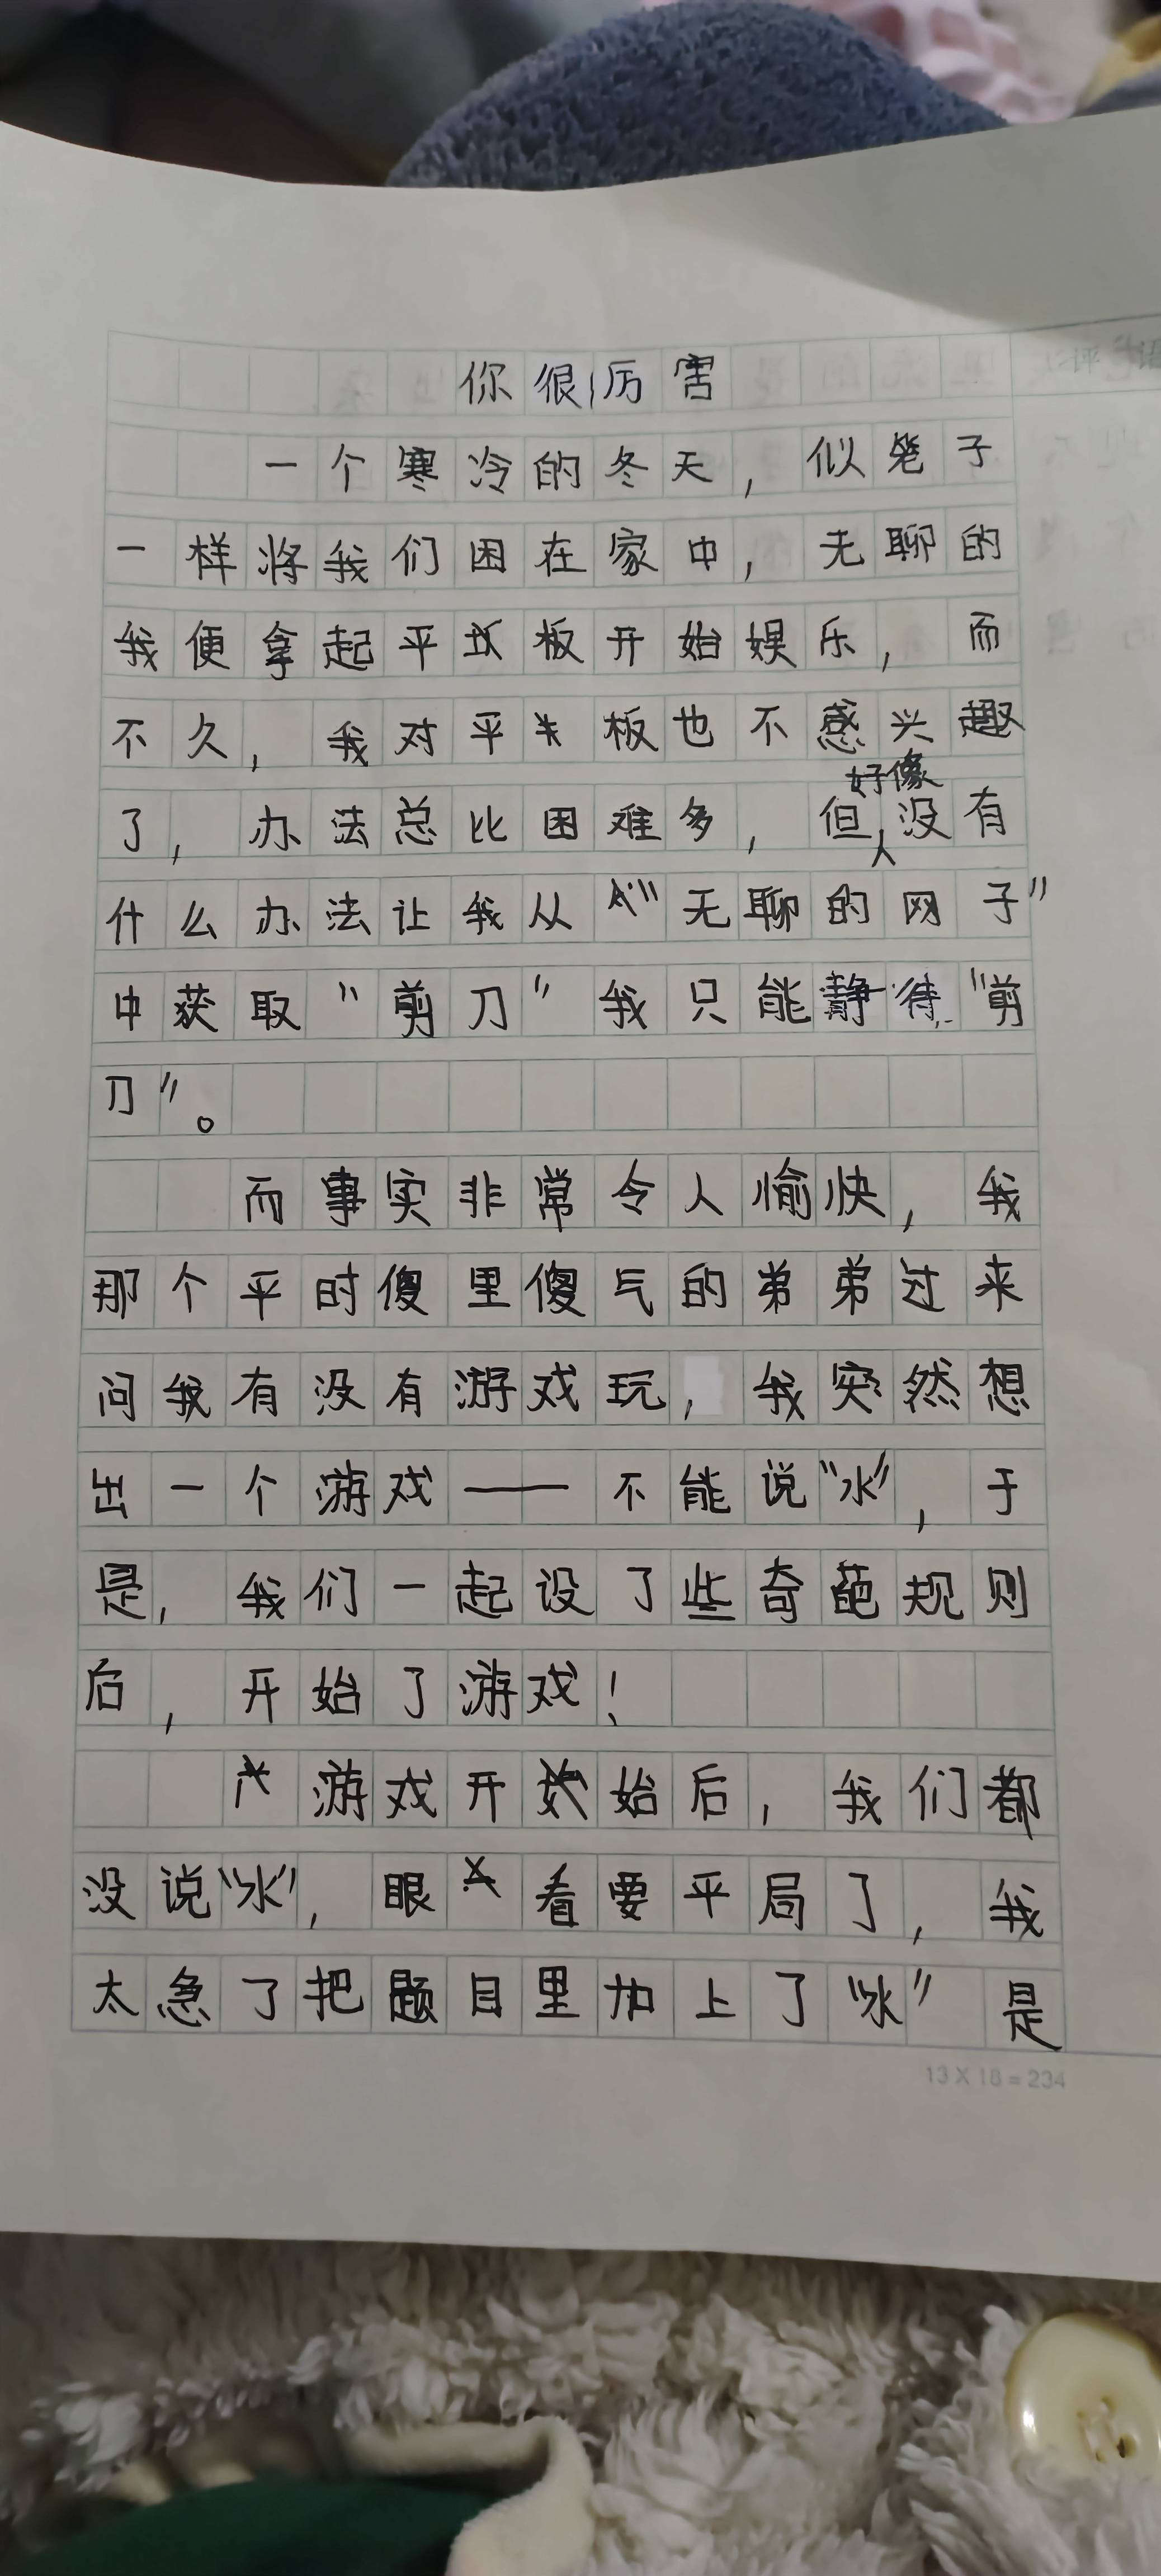 你很厉害
一个寒冷的冬天，似笼子
一样将我们困在家中，无聊的
我便拿起平板开始娱乐，而
不久，我对平板也不感兴趣
了，办法总比困难多，但好像没有
什么办法让我从“无聊的网子”
中获取“剪刀”我只能静待“剪
刀”。
而事实非常令人愉快，我
那个平时傻里傻气的弟弟过来
问我有没有游戏玩，我突然想
出一个游戏——不能说“水”，于
是，我们一起设了些奇葩规则
后，开始了游戏！
游戏开始后，我们都
没说“水”，眼看要平局了，我
太急了把题目里加上了“水”是
13 X 18 = 234